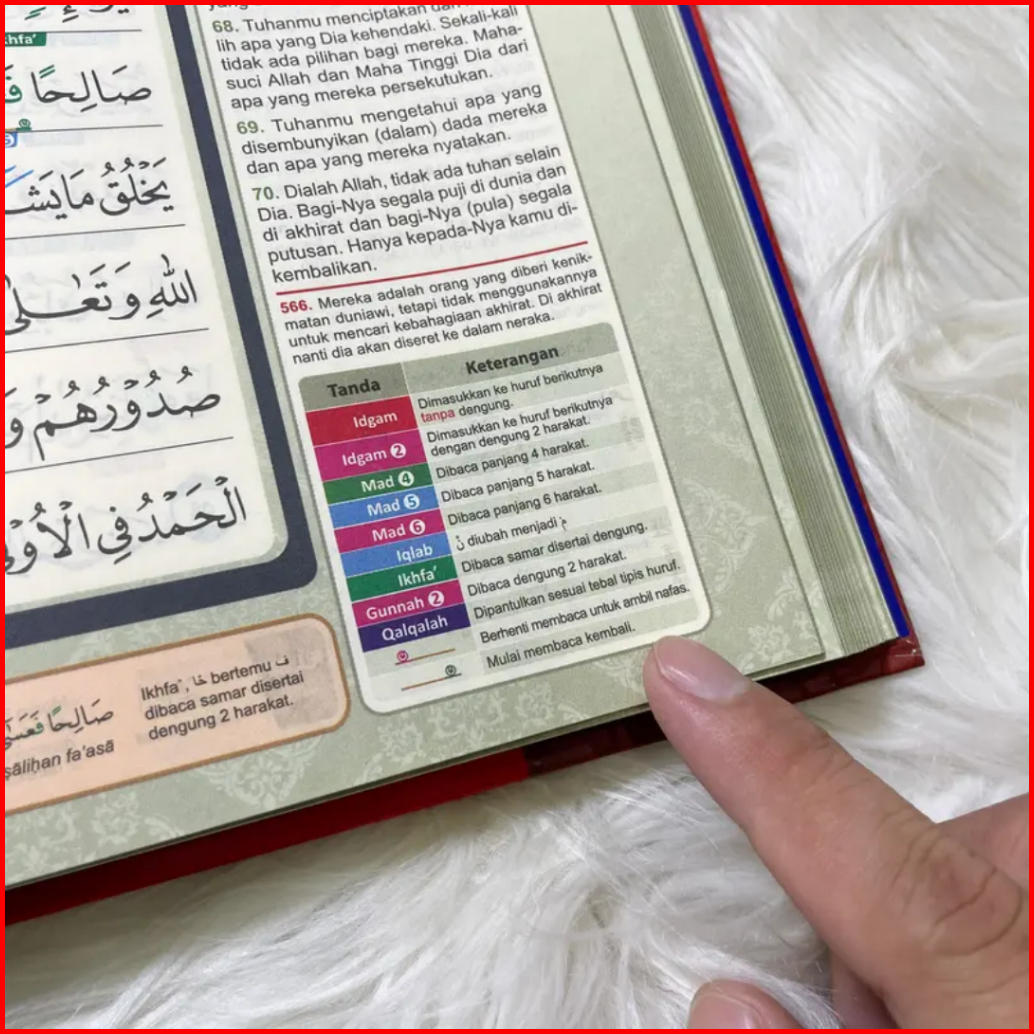 khfa’
صَالِحًا
يَخْلُقُ مَا يَشَ
اللّٰهِ وَتَعٰلٰى
صُدُوْرُهُمْ وَ
الْحَمْدُ فِى الْاُوْلٰى
68. Tuhanmu menciptakan dan
lih apa yang Dia kehendaki. Sekali-kali
tidak ada pilihan bagi mereka. Maha-
suci Allah dan Maha Tinggi Dia dari
apa yang mereka persekutukan.
69. Tuhanmu mengetahui apa yang
disembunyikan (dalam) dada mereka
dan apa yang mereka nyatakan.
70. Dialah Allah, tidak ada tuhan selain
Dia. Bagi-Nya segala puji di dunia dan
di akhirat dan bagi-Nya (pula) segala
putusan. Hanya kepada-Nya kamu di-
kembalikan.
566. Mereka adalah orang yang diberi kenik-
matan duniawi, tetapi tidak menggunakannya
untuk mencari kebahagiaan akhirat. Di akhirat
nanti dia akan diseret ke dalam neraka.
Tanda Keterangan
Idgam Dimasukkan ke huruf berikutnya
tanpa dengung.
Idgam 2 Dimasukkan ke huruf berikutnya
dengan dengung 2 harakat.
Mad 4 Dibaca panjang 4 harakat.
Mad 5 Dibaca panjang 5 harakat.
Mad 6 Dibaca panjang 6 harakat.
Iqlab نْ diubah menjadi مْ
Ikhfa’ Dibaca samar disertai dengung.
Gunnah 2 Dibaca dengung 2 harakat.
Qalqalah Dipantulkan sesuai tebal tipis huruf.
Berhenti membaca untuk ambil nafas.
Mulai membaca kembali.
صَالِحًا فَعَسٰٓى
ṣāliḥan fa'asā
Ikhfa’, حًا bertemu ف
dibaca samar disertai
dengung 2 harakat.